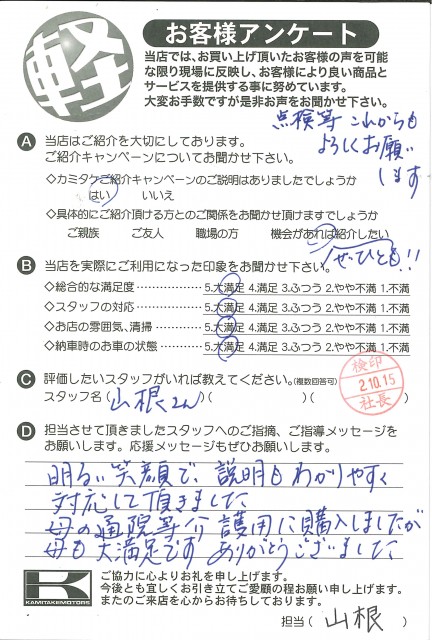 軽
お客様アンケート
当店では、お買い上げ頂いたお客様の声を可能
な限り現場に反映し、お客様により良い商品と
サービスを提供する事に努めています。
大変お手数ですが是非お声をお聞かせ下さい。
点検等 これからも
よろしくお願い
します
A 当店はご紹介を大切にしております。
ご紹介キャンペーンについてお聞かせ下さい。
◇カミタケご紹介キャンペーンのご説明はありましたでしょうか
はい いいえ
◇具体的にご紹介頂ける方とのご関係をお聞かせ頂けますでしょうか
ご親族 ご友人 職場の方 機会があれば紹介したい
ぜひとも!!
B 当店を実際にご利用になった印象をお聞かせ下さい。
◇総合的な満足度 5.大満足 4.満足 3.ふつう 2.やや不満 1.不満
◇スタッフの対応 5.大満足 4.満足 3.ふつう 2.やや不満 1.不満
◇お店の雰囲気、清掃 5.大満足 4.満足 3.ふつう 2.やや不満 1.不満
◇納車時のお車の状態 5.大満足 4.満足 3.ふつう 2.やや不満 1.不満
C 評価したいスタッフがいれば教えてください。(複数回答可)
スタッフ名(山根さん)( )( )
検印
2.10.15
社長
D 担当させて頂きましたスタッフへのご指摘、ご指導メッセージを
お願いします。応援メッセージもぜひお願いします。
明るい笑顔で、説明もわかりやすく
対応して頂きました
母の通院等介護用に購入しましたが
母も大満足です ありがとうございました
K
KAMITAKEMOTORS
ご協力に心よりお礼を申し上げます。
今後とも宜しくお引き立てご愛顧の程お願い申し上げます。
またのご来店を心からお待ちしております。
担当(山根)